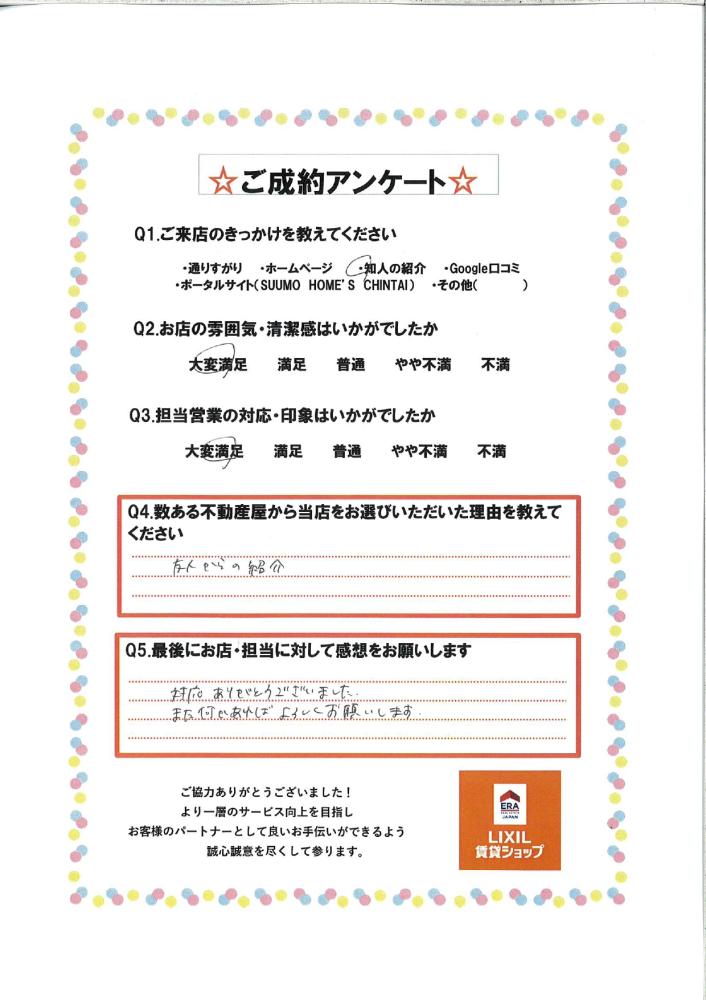 ☆ご成約アンケート☆
Q1.ご来店のきっかけを教えてください
・通りすがり ・ホームページ ・知人の紹介 ・Google口コミ
・ポータルサイト(SUUMO HOME'S CHINTAI) ・その他( )
Q2.お店の雰囲気・清潔感はいかがでしたか
大変満足 満足 普通 やや不満 不満
Q3.担当営業の対応・印象はいかがでしたか
大変満足 満足 普通 やや不満 不満
Q4.数ある不動産屋から当店をお選びいただいた理由を教えて
ください
友人からの紹介
Q5.最後にお店・担当に対して感想をお願いします
対応ありがとうございました.
また何かあればよろしくお願いします.
ご協力ありがとうございました!
より一層のサービス向上を目指し
お客様のパートナーとして良いお手伝いができるよう
誠心誠意を尽くして参ります。
ERA
REAL ESTATE
JAPAN
LIXIL
賃貸ショップ